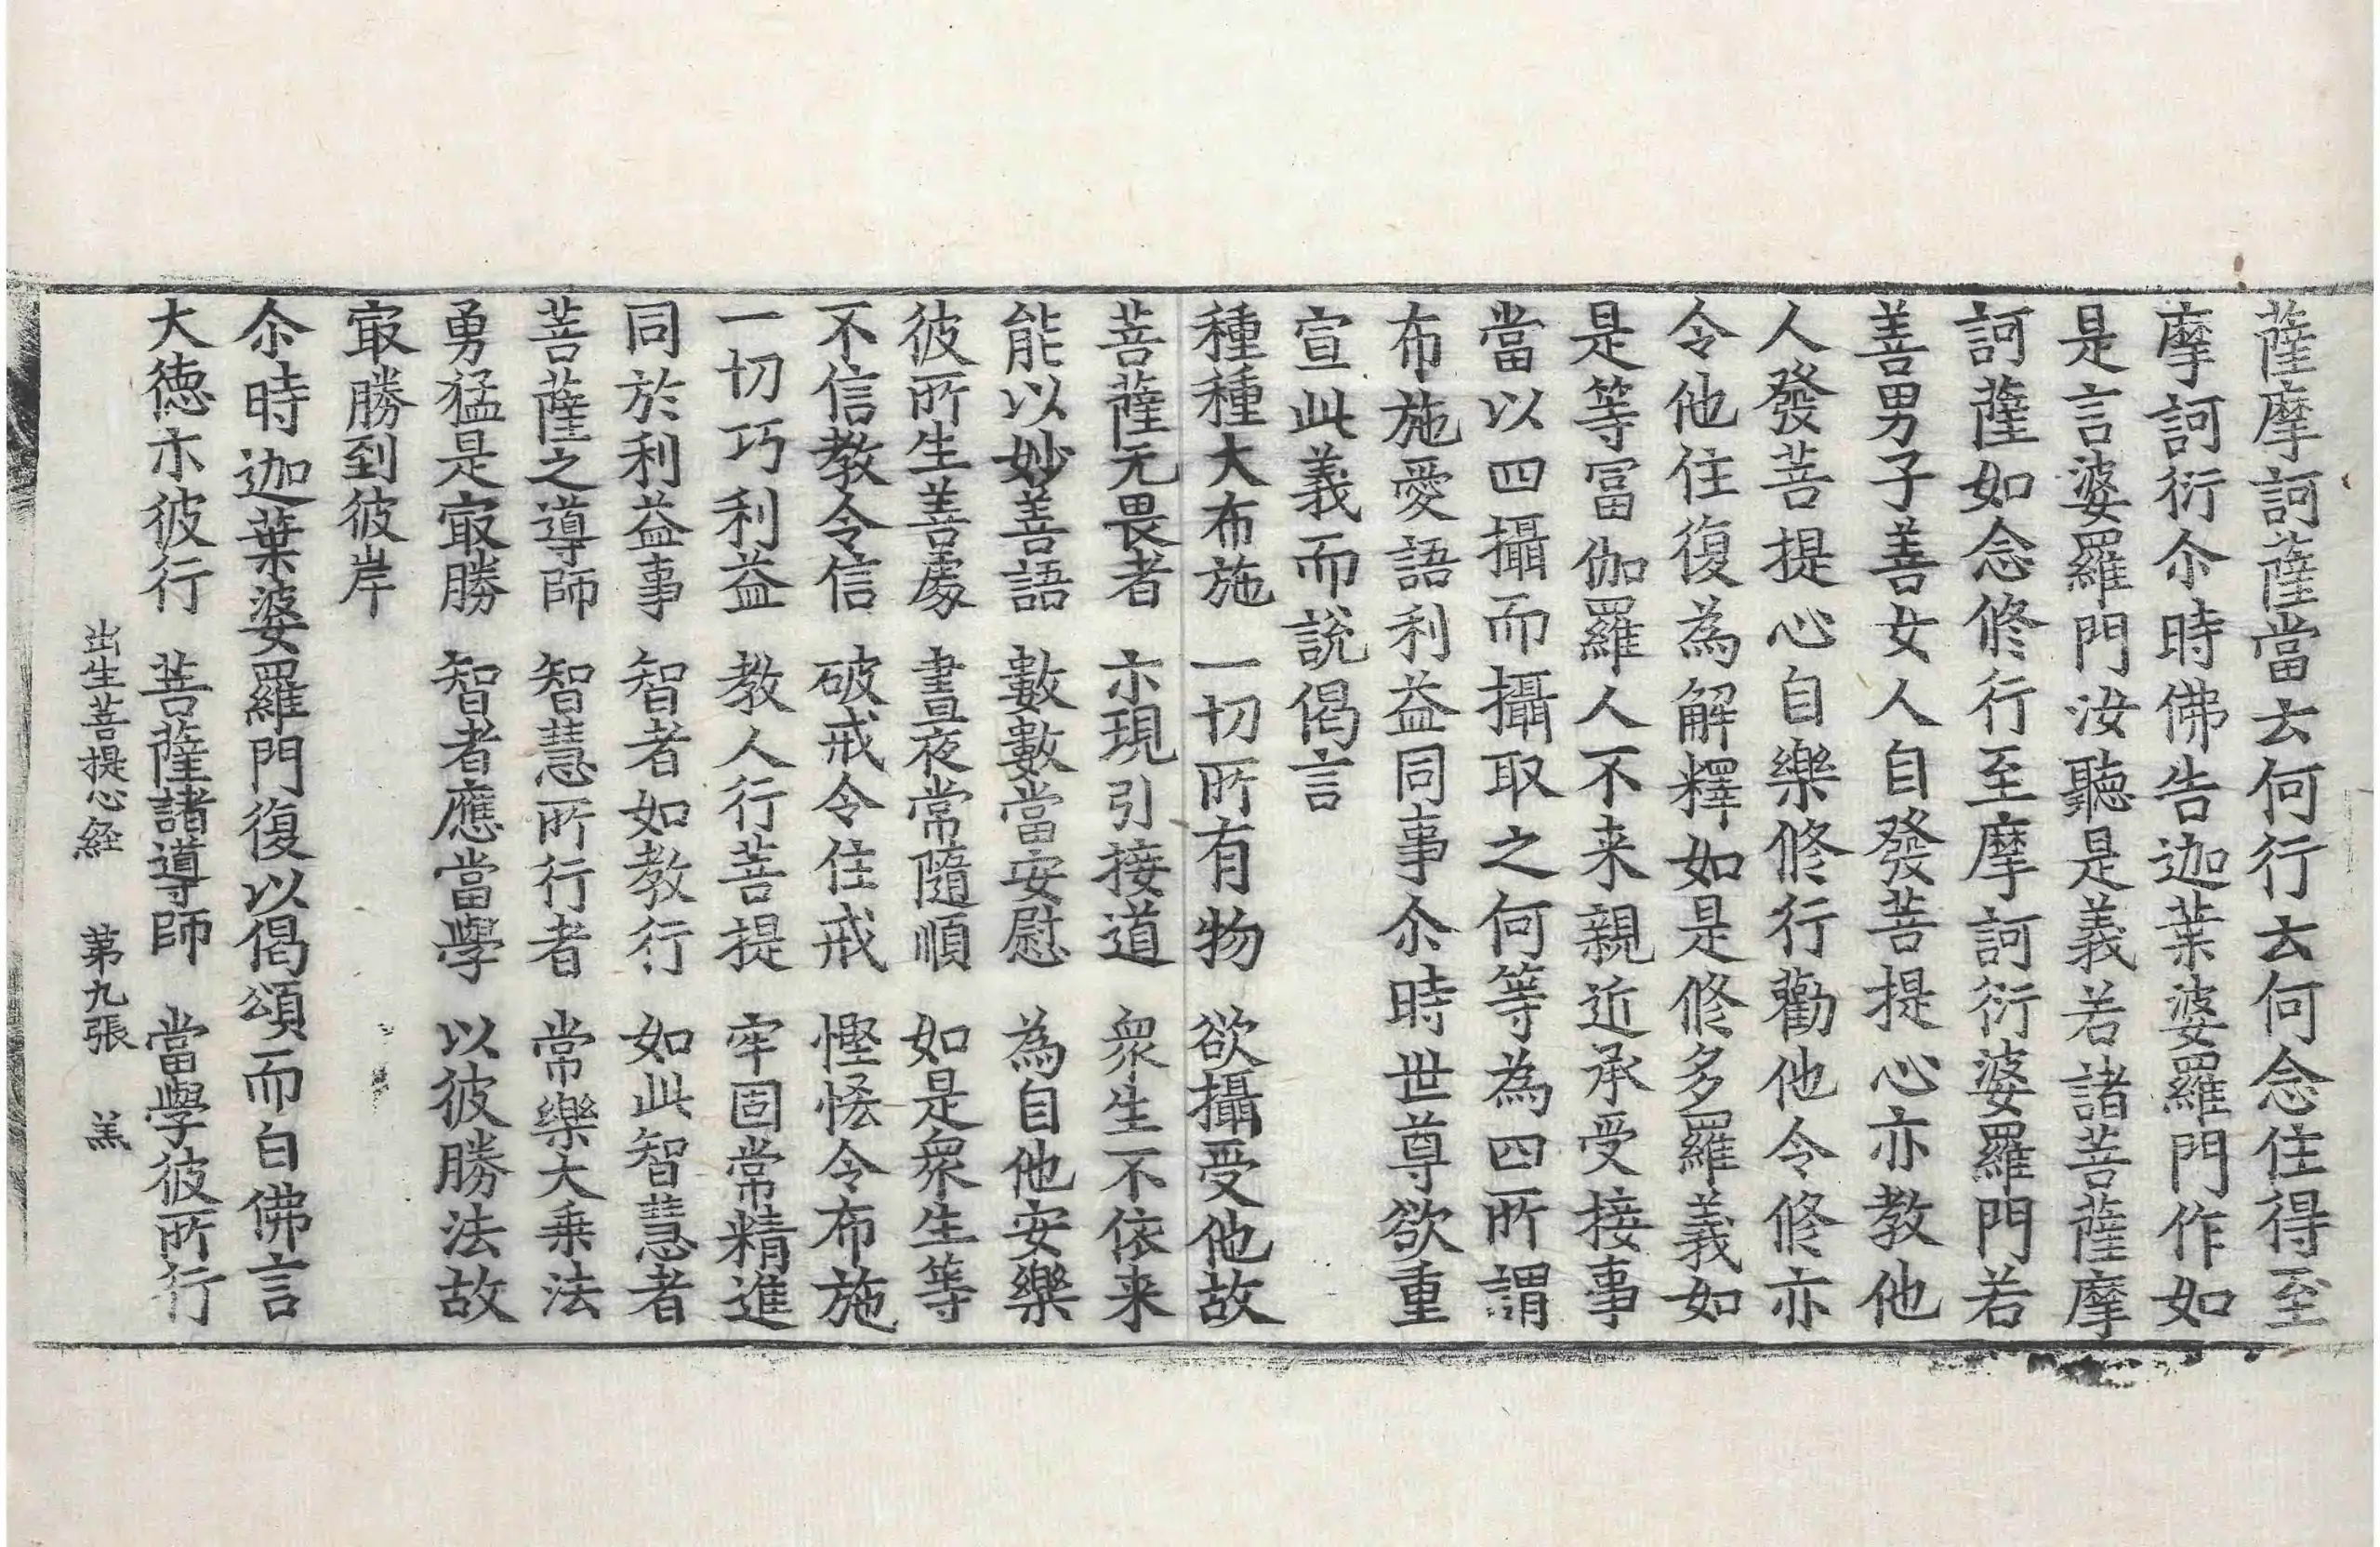 薩摩訶薩當去何行去何念住得至
摩訶衍尒時佛告迦葉婆羅門作如
是言婆羅門汝聽是義若諸菩薩摩
訶薩如念修行至摩訶衍婆羅門若
善男子善女人自發菩提心亦教他
人發菩提心自樂修行勸他令修亦
令他住復為解釋如是修多羅義如
是等冨伽羅人不来親近承受接事
當以四攝而攝取之何等為四所謂
布施愛語利益同事尒時世尊欲重
宣此義而說偈言
種種大布施　一切所有物　欲攝受他故
菩薩无畏者　示現引接道　衆生不依来
能以妙善語　數數當安慰　為自他安樂
彼所生善處　晝夜常隨順　如是衆生等
不信教令信　破戒令住戒　慳悋令布施
一切巧利益　教人行菩提　牢固常精進
同於利益事　智者如教行　如此智慧者
菩薩之導師　智慧所行者　常樂大乗法
勇猛是㝡勝　智者應當學　以彼勝法故
㝡勝到彼岸
尒時迦葉婆羅門復以偈頌而白佛言
大德示彼行　菩薩諸導師　當學彼所行
出生菩提心経　第九張　羔